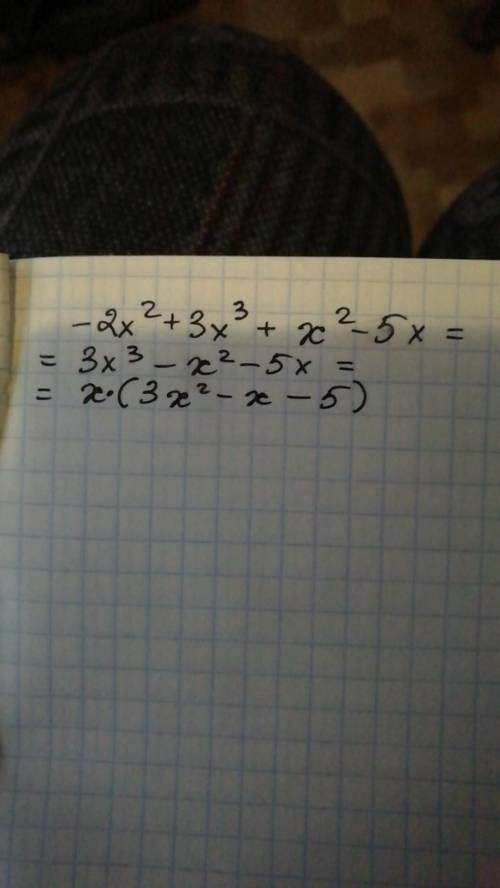 -2x² + 3x³ + x² - 5x =
= 3x³ - x² - 5x =
= x·(3x² - x - 5)